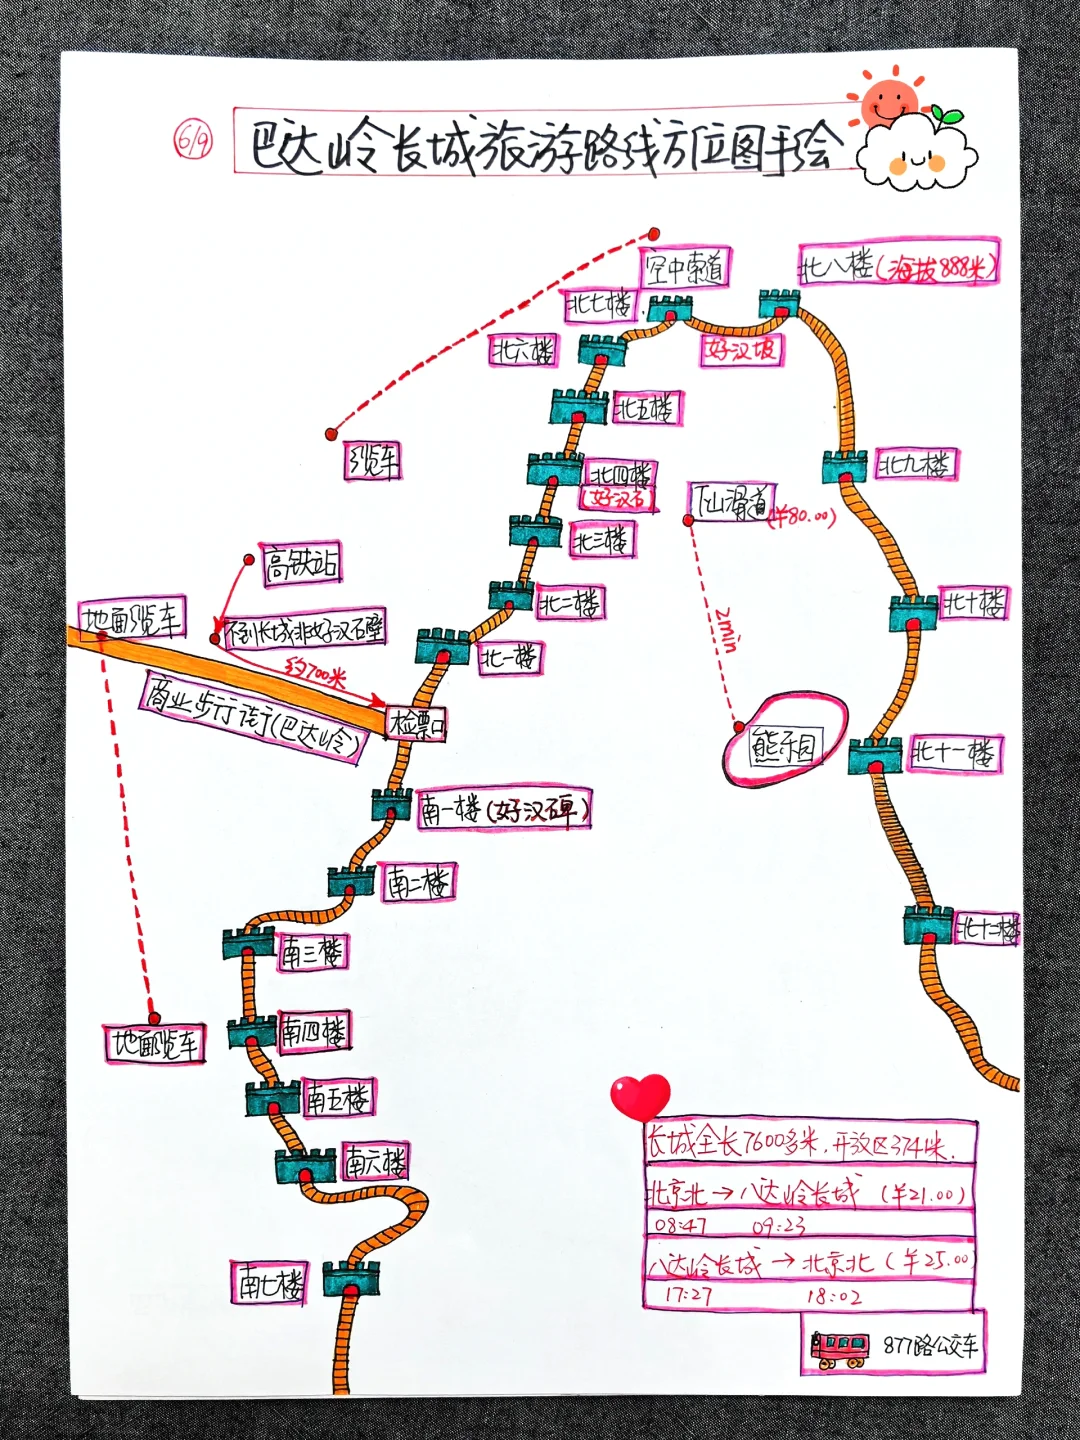 6/9
巴达岭长城旅游路线方位图手绘
空中索道
北八楼(海拔888米)
北七楼
好汉坡
北六楼
北五楼
缆车
北四楼
(好汉石)
北九楼
下山滑道
(¥80.00)
北三楼
高铁站
北二楼
北十楼
地面缆车
长城非好汉石壁
2min
北一楼
约700米
商业步行街(巴达岭)
检票口
熊乐园
北十一楼
南一楼(好汉碑)
南二楼
北十二楼
南三楼
南四楼
地面缆车
南五楼
南六楼
南七楼
长城全长7600多米,开放区3741米.
北京北→八达岭长城 (¥21.00)
08:47 09:23
八达岭长城→北京北 (¥25.00
17:27 18:02
877路公交车